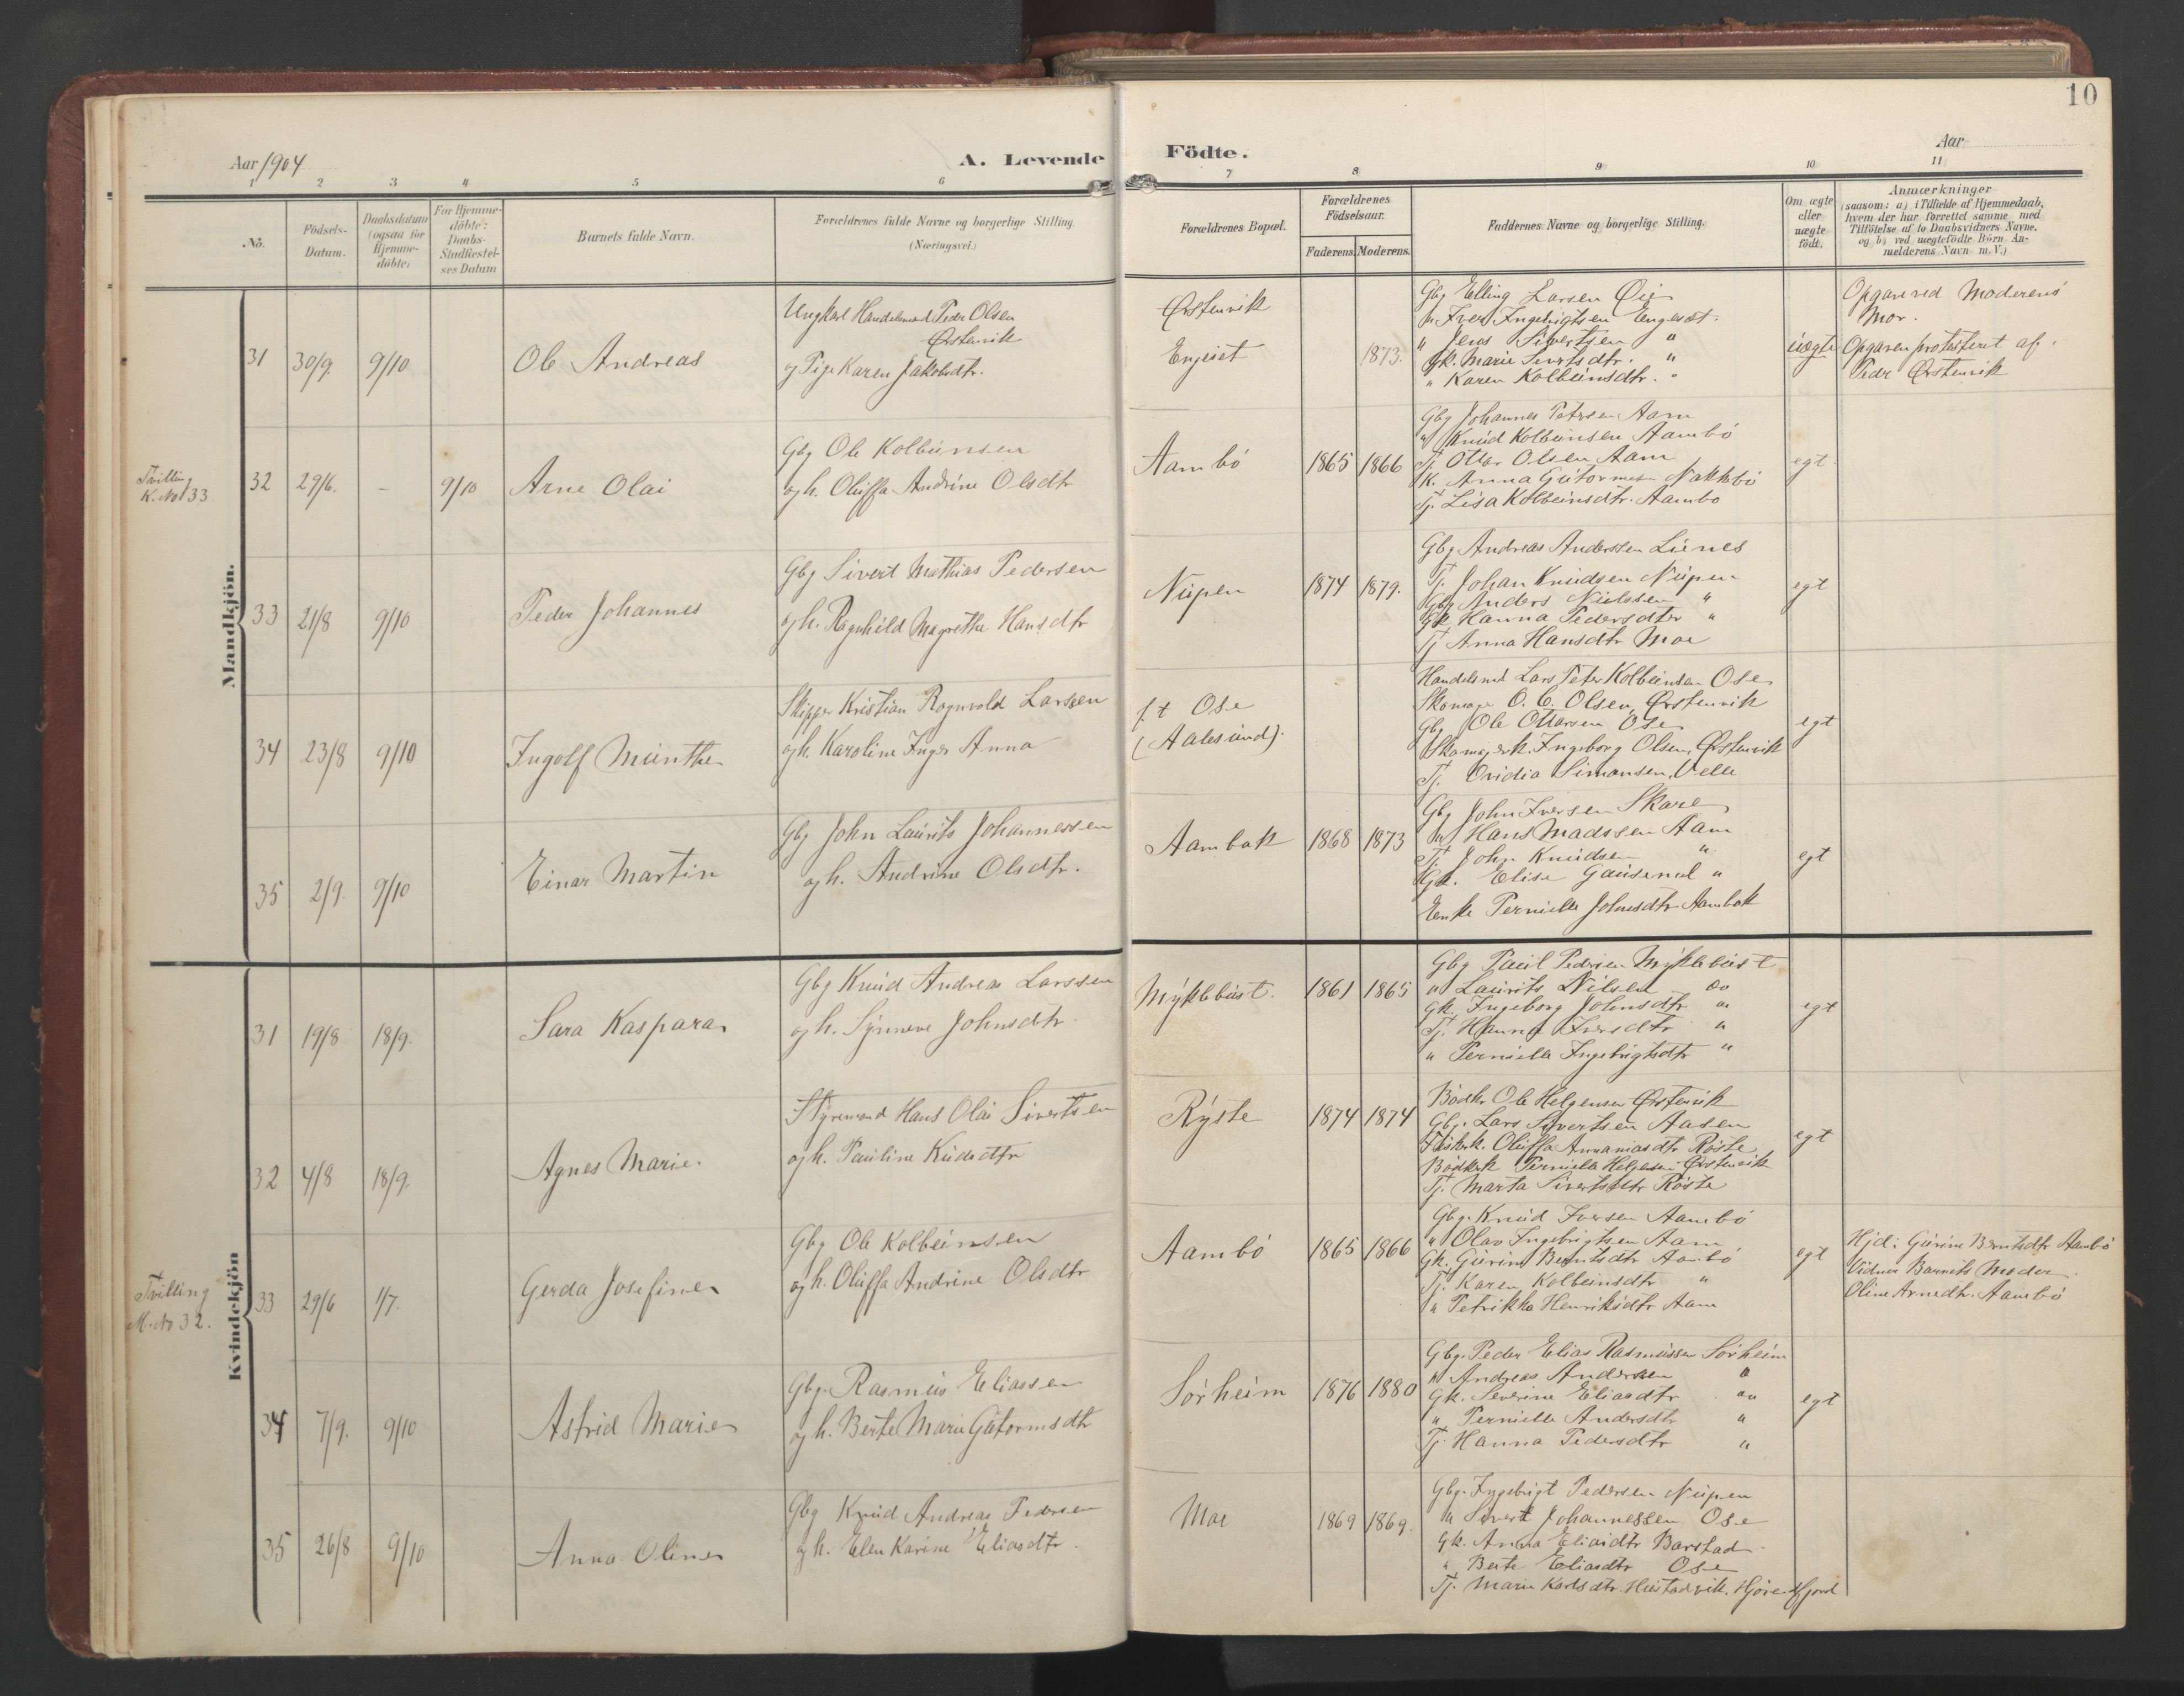 10
Aar 1904
A. Levende Födte.
Aar
1 2 3 4 5 6 7 8 9 10 11
No.
Födsels-Datum.
Daabsdatum (ogsaa for Hjemme-döbte)
For Hjemme-döbte: Daabs-Stadfæstel-ses Datum
Barnets fulde Navn.
Forældrenes fulde Navne og borgerlige Stilling
(Næringsvei.)
Forældrenes Bopæl.
Forældrenes Födselsaar.
Faderens Moderens.
Faddernes Navne og borgerlige Stilling.
Om ægte eller uægte födt.
Anmærkninger
(saasom: a) i Tilfælde af Hjemmedaab,
hvem der har forrettet samme med
Tilföielse af to Daabsvidners Navne.
og b) ved uægtefödte Börn An-
melderens Navn m. V.)
Mandkjön.
31 30/9. 9/10 Ole Andreas
Ungkarl Handelsmand Peder Olsen
Ørstenvik
og Pige Karen Jakobsdtr.
Ørstenvik
Engeset
1873.
Gbg Elling Larsen Øie
" Iver Ingebrigtsen Engeset.
" Jens Sivertsen "
Gk. Marie Sivertsdtr. "
" Karen Kolbeinsdtr. "
uægte
Opgave ved Moderens
Mor.
Opgaven protesteret af
Peder Ørstenvik
Tvilling
K. No 33
32 29/6. - 9/10 Arne Olai
Gbg Ole Kolbeinsen
og h. Oluffa Andrine Olsdtr
Aambö
1865 1866
Gbg Johannes Petersen Aam
" Knud Kolbeinsen Aambö
Tj. Ottar Olsen Aam
K. Anna Gutormsen Nakkbö
Tj. Lisa Kolbeinsdtr. Aambö
egt
33 21/8 9/10 Peder Johannes
Gbg Sivert Mathias Pedersen
og h. Ragnhild Magrethe Hansdtr
Nupen
1874 1879.
Gbg Andreas Anderssen Lünes
Tj. Johan Knudsen Nupen
Gbg Anders Nielssen "
Gk Hanna Pedersdter "
Tj Anna Hansdtr Moe
egt
34 23/8 9/10 Ingolf Munthe
Skipper Kristian Ragnvald Larssen
og h. Karoline Inger Anna
f. t Ose
(Aalesund).
Handelsmd Lars Peter Kolbeinsen Ose
Skomager O. C. Olsen, Ørstenvik
Gbg Ole Ottarsen Ose
Skomagerk. Ingeborg Olsen, Ørstenvik
Tj. Ovidia Simonsen, Velle
egt
35 2/9. 9/10 Einar Martin
Gbg John Laurits Johannessen
og h. Andrine Olsdtr.
Aambak
1868 1873
Gbg John Iversen Skare
" Hans Madssen Aam
Tj. John Knudsen "
Gk. Elise Gausenul "
Enke Pernille Johnsdtr Aambak
egt
Kvindekjön
31 19/8 18/9. Sara Kaspara
Gbg Knud Andreas Larssen
og h. Synneve Johnsdtr
Myklebust.
1861 1865
Gbg Paul Pedersen Myklebust
" Laurits Nilsen Do
Gk. Ingeborg Johnsdtr "
Tj. Hanna Iversdtr "
" Pernille Ingebrigtsdtr "
egt
32 4/8 18/9. Agnes Marie
Styremand Hans Olai Sivertsen
og h. Pauline Knudsdtr
Ryste
1874 1874
Bödker Ole Helgensen Ørstenvik
Gbg. Lars Sivertsen Aasen
Oluffa Annaniasdtr Röste
Bödkerk Pernille Helgesen Ørstenvik
Tj. Marta Sivertsdtr Röste
egt
Tvilling
M. No 32.
33 29/6 1/7. Gerda Josefine
Gbg Ole Kolbeinsen
og h. Oluffa Andrine Olsdtr
Aambö
1865 1866
Gbg. Knud Iversen Aambö
" Olav Ingebrigtsen Aam
Gk. Gurine Berntsdtr Aambö
Tj. Karen Kolbeinsdtr "
" Petrikka Henriksdtr Aam
egt
Hjd: Gurine Berntsdtr Aambö
Vidner Barnets Moder.
Oline Arnedtr. Aambö
34 7/9. 9/10 Astrid Marie
Gbg. Rasmus Eliassen
og h. Berte Marie Gutormsdtr
Sörheim
1876 1880
Gbg. Peder Elias Rasmussen Sörheim
" Andreas Andersen "
Gk. Severine Eliasdtr "
" Pernille Andersdtr "
Tj. Hanna Pedersdtr "
egt
35 26/8 9/10 Anna Oline
Gbg Knud Andreas Pedersen
og h. Elen Karine Eliasdtr.
Moe
1869 1869.
Gbg. Ingebrigt Pedersen Nupen
" Sivert Johannessen Ose
Gk. Anna Eliasdtr Barstad
" Berte Eliasdtr Ose
Tj. Marie Karlsdtr Hustadvik, Hjörendfjord